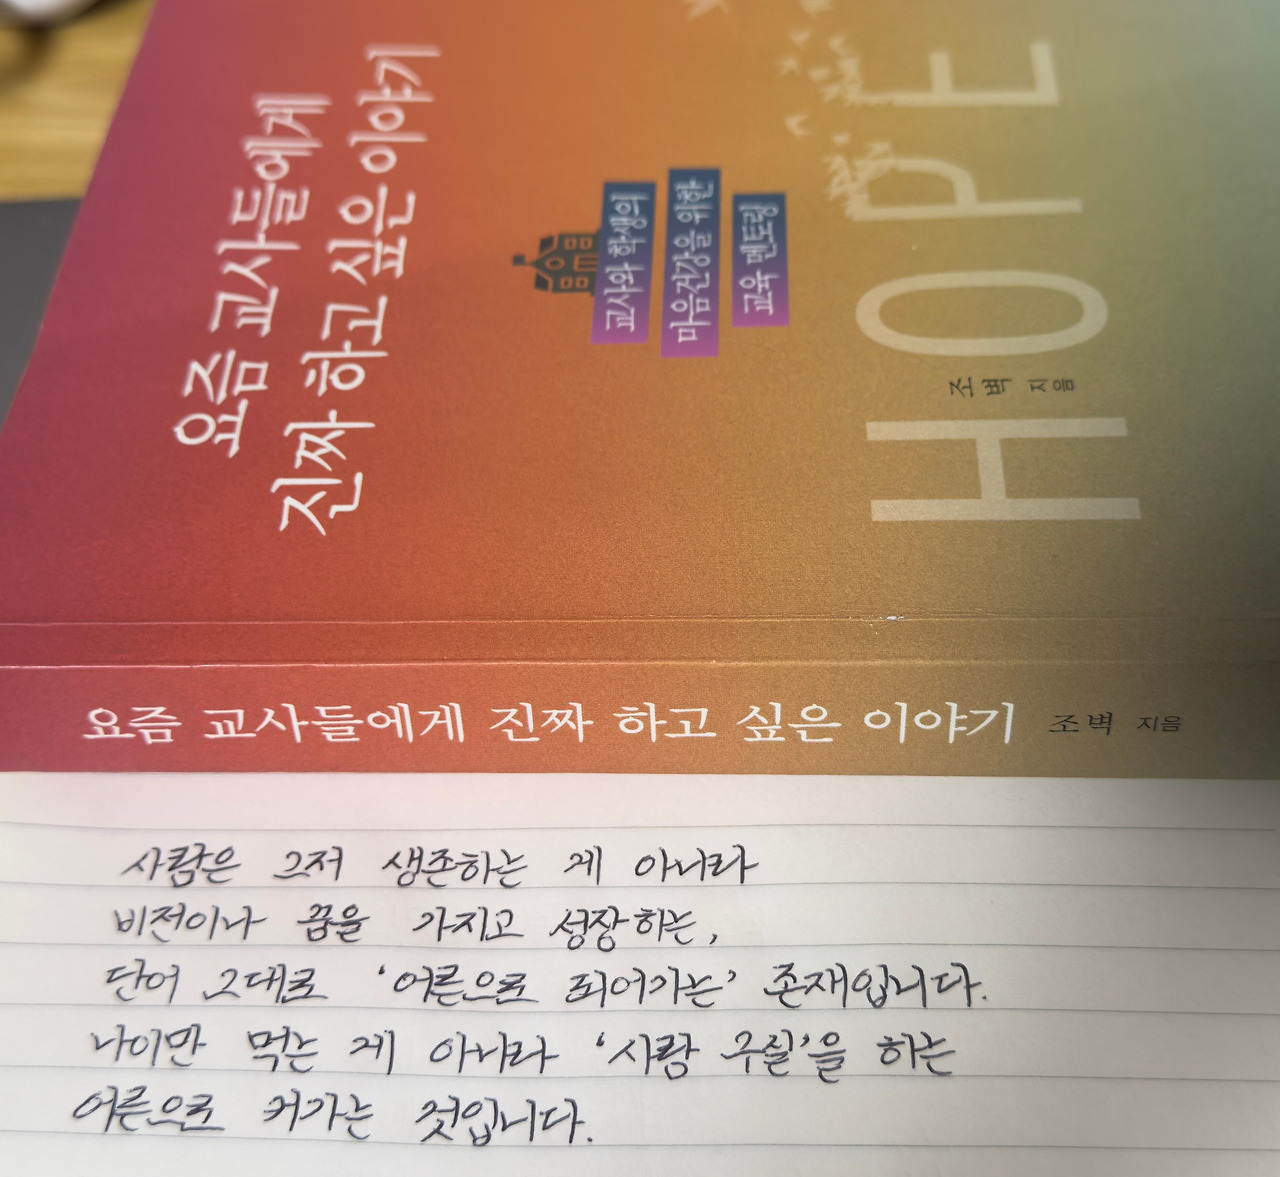 요즘 교사들에게
진짜 하고 싶은 이야기
교사와 학생의
마음건강을 위한
교육 멘토링
HOPE
조벽 지음
요즘 교사들에게 진짜 하고 싶은 이야기 조벽 지음
사람은 그저 생존하는 게 아니라
비전이나 꿈을 가지고 성장하는,
단어 그대로 '어른으로 되어가는' 존재입니다.
나이만 먹는 게 아니라 '사람 구실'을 하는
어른으로 커가는 것입니다.